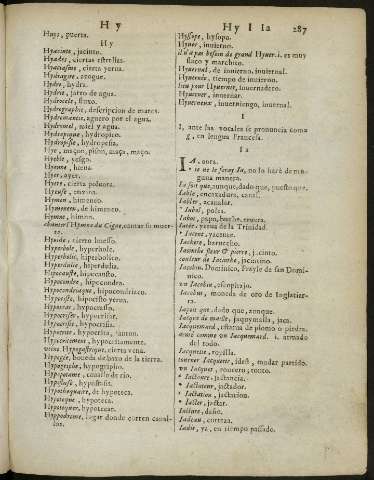 Hy
Hy I Ia 287
Huys, puerta.
Hy
Hyacinte, jacinto.
Hyades, ciertas estrellas.
Hydragire, azogue.
Hydre, hydra.
Hydrie, jarro de agua.
Hydrocele, fluxo.
Hydrographie, descripcion de mares.
Hydromantie, aguero por el agua.
Hydromel, miel y agua.
Hydropique, hydropico.
Hydropisie, hydropesia.
Hye, maçon, pison, maça, maço.
Hyeble, yesgo.
Hyenne, hiena.
Hyer, ayer.
Hymen, himeneo.
Hymeneen, de himeneo.
Hymne, himno.
chanter l'Hymne du Cigne, cantar su muer-
te.
Hyoide, tierno huesso.
Hyperbole, hyperbole.
Hyperbolic, hiperbolico.
Hyperdulie, hiperdulia.
Hypocauste, hipocausto.
Hypocondre, hipocondra.
Hypocondriaque, hipocondriaco.
Hypocras, hypocrasso.
Hypocriser, hypocrisar.
Hypocrisie, hypocrisia.
Hypocrite, hipocrita, santon.
Hypocritement, hypocritamente.
veine Hypogastrique, cierta vena.
Hypogée, boveda debaxo de la tierra.
Hypogeophe, hypographio.
Hypopotame, cavallo de rio.
Hypostase, hypostasis.
Hypothequaire, de hypoteca.
Hypoteque, hypoteca.
Hypotequer, hypotecar.
Hyppodrome, lugar donde corren caval-
los.
Hyssope, hysopo.
Hyver, invierno.
il n'a pas besoin de grand Hyver. i. es muy
flaco y marchito.
Hyvernal, de invierno, invernal.
l'Hyvernale, tiempo de invierno.
lieu pour Hyverner, invernadero.
Hyverner, invernar.
Hyverneux, inverniengo, invernal.
I
I, ante las vocales se pronuncia como
g, en lengua Francesa.
Ia
IA, aora.
je ne le feray Ia, no lo haré de nin-
guna manera.
Ia soit que, aunque, dado que, puesto que.
Iable, encaxadura, canal.
Iabler, acanalar.
Iabot, papo, buche, reuera.
Iacée, yerva de la Trinidad.
Iacent, yacente.
Iachere, barvecho.
Iacinthe fleur & pierre, jacinto.
couleur de Iacinthe, jacintino.
Iacobin, Dominico, Frayle de san Domi-
nico.
Iacobus, moneda de oro de Inglater-
ra.
Iaçoit que, dado que, aunque.
Iacque de maille, jaquymalla, jaco.
Iacquemard, estatua de plomo o piedra.
armé comme un Iacquemard. i. armado
del todo.
tourner Iacquette, idest, mudar partido.
un Iacquet, roncero, tonto.
Iactance, jactancia.
Iactateur, jactador.
Iactation, jactacion.
Iacter, jactar.
Iacture, daño.
Iadeau, corteza.
Iadis, ya, en tiempo passado.